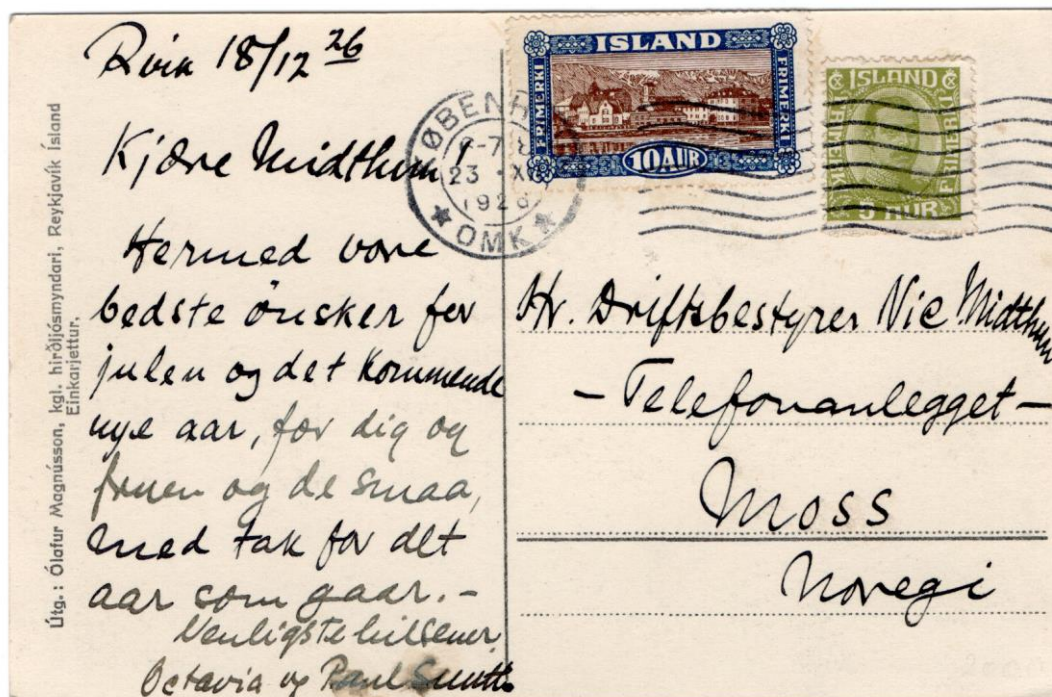 Rvik 18/12 26
Kjære Midthun!
Hermed vore
bedste önsker for
julen og det kommende
nye aar, for dig og
fruen og de smaa,
med tak for det
aar som gaar. -
Venligste hilsener
Octavia og Paul Smith
Útg.: Ólafur Magnússon, kgl. hirðljósmyndari, Reykjavík Ísland
Einkarjettur.
ØBENH
23 XII
1926
OMK
ISLAND
FRIMERKI
FRIMERKI
10 AUR
ISLAND
FRIMERKI
5 AUR
Hr. Driftsbestyrer Nic Midthun
- Telefonanlegget -
Moss
Noregi